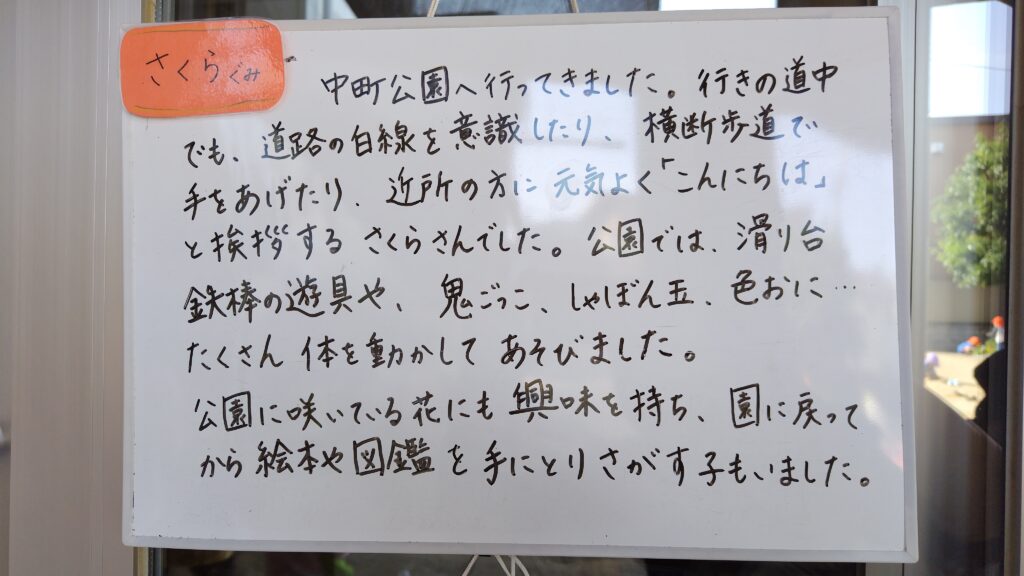 さくらぐみ
中町公園へ行ってきました。行きの道中
でも、道路の白線を意識したり、横断歩道で
手をあげたり、近所の方に元気よく「こんにちは」
と挨拶するさくらさんでした。公園では、滑り台
鉄棒の遊具や、鬼ごっこ、しゃぼん玉、色おに…
たくさん体を動かしてあそびました。
公園に咲いている花にも興味を持ち、園に戻って
から絵本や図鑑を手にとりさがす子もいました。